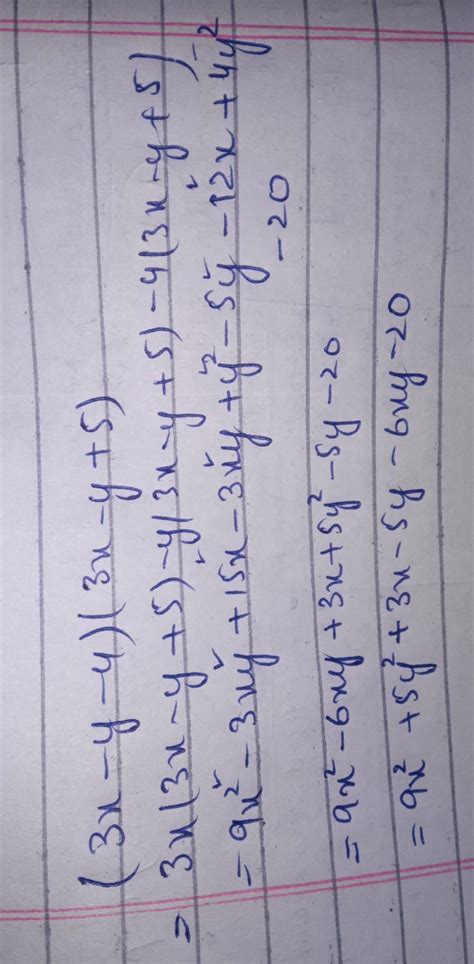 (3x-y-4)(3x-y+5)
= 3x(3x-y+5)-y(3x-y+5)-4(3x-y+5)
= 9x²-3xy+15x-3xy+y²-5y-12x+4y²
-20
= 9x²-6xy+3x+5y²-5y-20
= 9x²+5y²+3x-5y-6xy-20